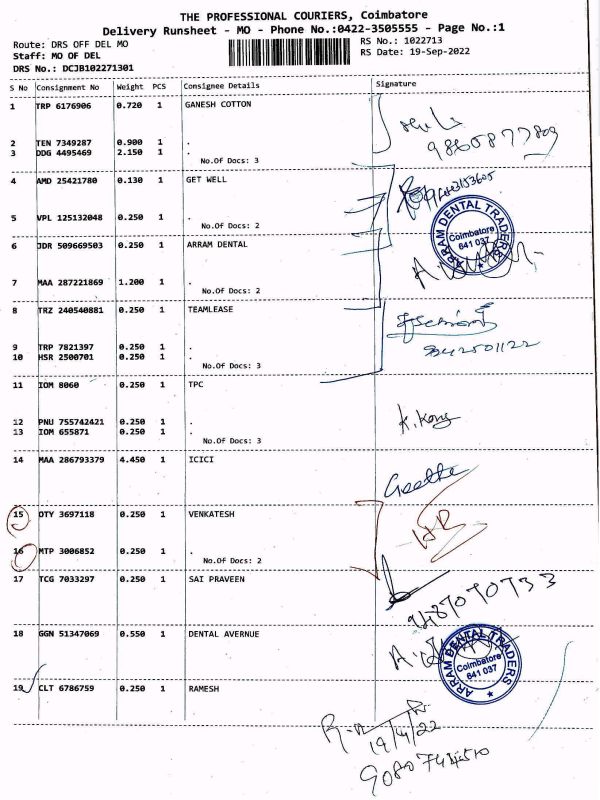 THE PROFESSIONAL COURIERS, Coimbatore
Delivery Runsheet - MO - Phone No.:0422-3505555 - Page No.:1
Route: DRS OFF DEL MO
RS No.: 1022713
Staff: MO OF DEL
RS Date: 19-Sep-2022
DRS No.: DCJB102271301
S No Consignment No Weight PCS Consignee Details Signature
1 TRP 6176906 0.720 1 GANESH COTTON
2 TEN 7349287 0.900 1 .
3 DDG 4495469 2.150 1 .
No.Of Docs: 3
4 AMD 25421780 0.130 1 GET WELL
5 VPL 125132048 0.250 1 .
No.Of Docs: 2
ARRAM DENTAL TRADERS
Coimbatore
641 037
6 JDR 509669503 0.250 1 ARRAM DENTAL
7 MAA 287221869 1.200 1 .
No.Of Docs: 2
8 TRZ 240540881 0.250 1 TEAMLEASE
9 TRP 7821397 0.250 1 .
10 HSR 2500701 0.250 1 .
No.Of Docs: 3
11 IOM 8060 0.250 1 TPC
12 PNU 755742421 0.250 1 .
13 IOM 655871 0.250 1 .
No.Of Docs: 3
14 MAA 286793379 4.450 1 ICICI
Geetha
15 DTY 3697118 0.250 1 VENKATESH
16 MTP 3006852 0.250 1 .
No.Of Docs: 2
17 TCG 7033297 0.250 1 SAI PRAVEEN
9487070733
18 GGN 51347069 0.550 1 DENTAL AVERNUE
ARRAM DENTAL TRADERS
Coimbatore
641 037
19 CLT 6786759 0.250 1 RAMESH